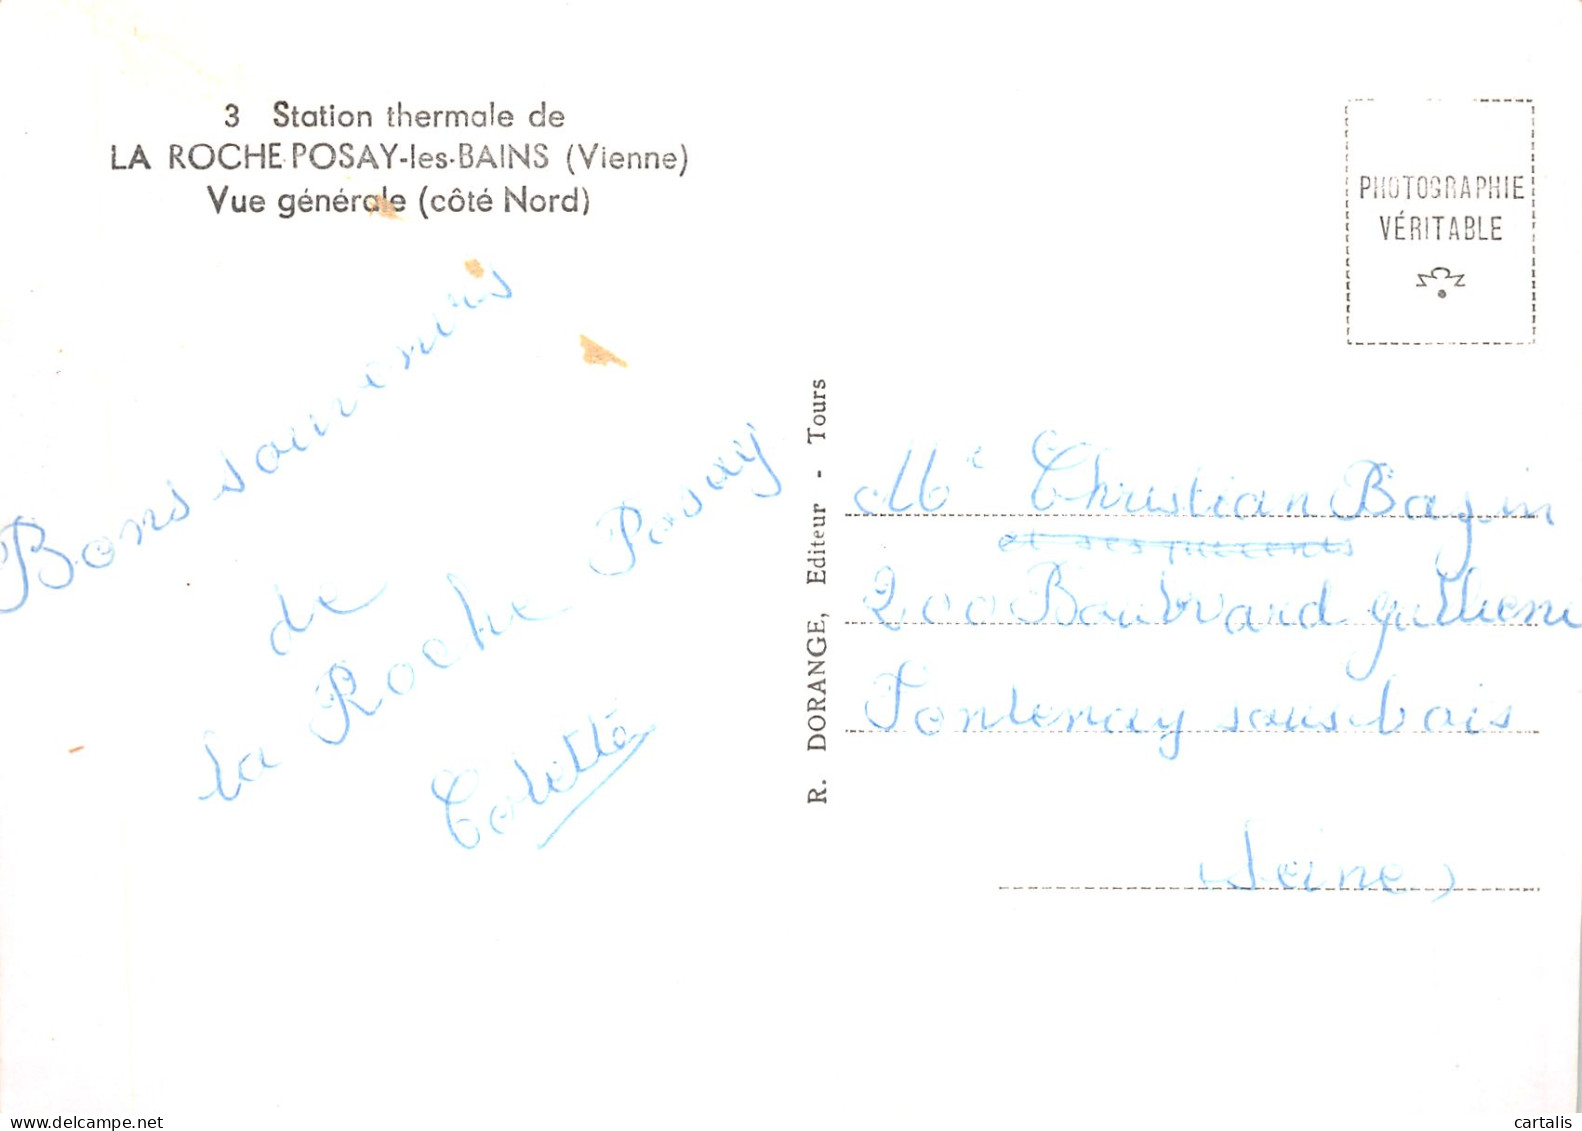 3 Station thermale de
LA ROCHE POSAY-les-BAINS (Vienne)
Vue générale (côté Nord)
PHOTOGRAPHIE
VÉRITABLE
Bons souvenirs
de
la Roche Posay
Colette
R. DORANGE, Editeur - Tours
Me Christian Bazin
et ses parents
200 Boulvard
Fontenay sous bois
Seine
delcampe.net
cartalis